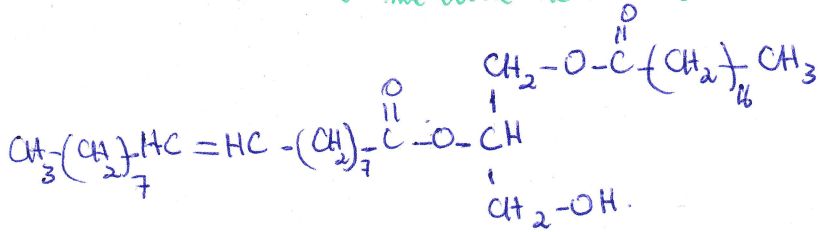 O
CH2-O-C-(CH2)16-CH3
O
CH3-(CH2)7-HC=HC-(CH2)7-C-O-CH
CH2-OH.